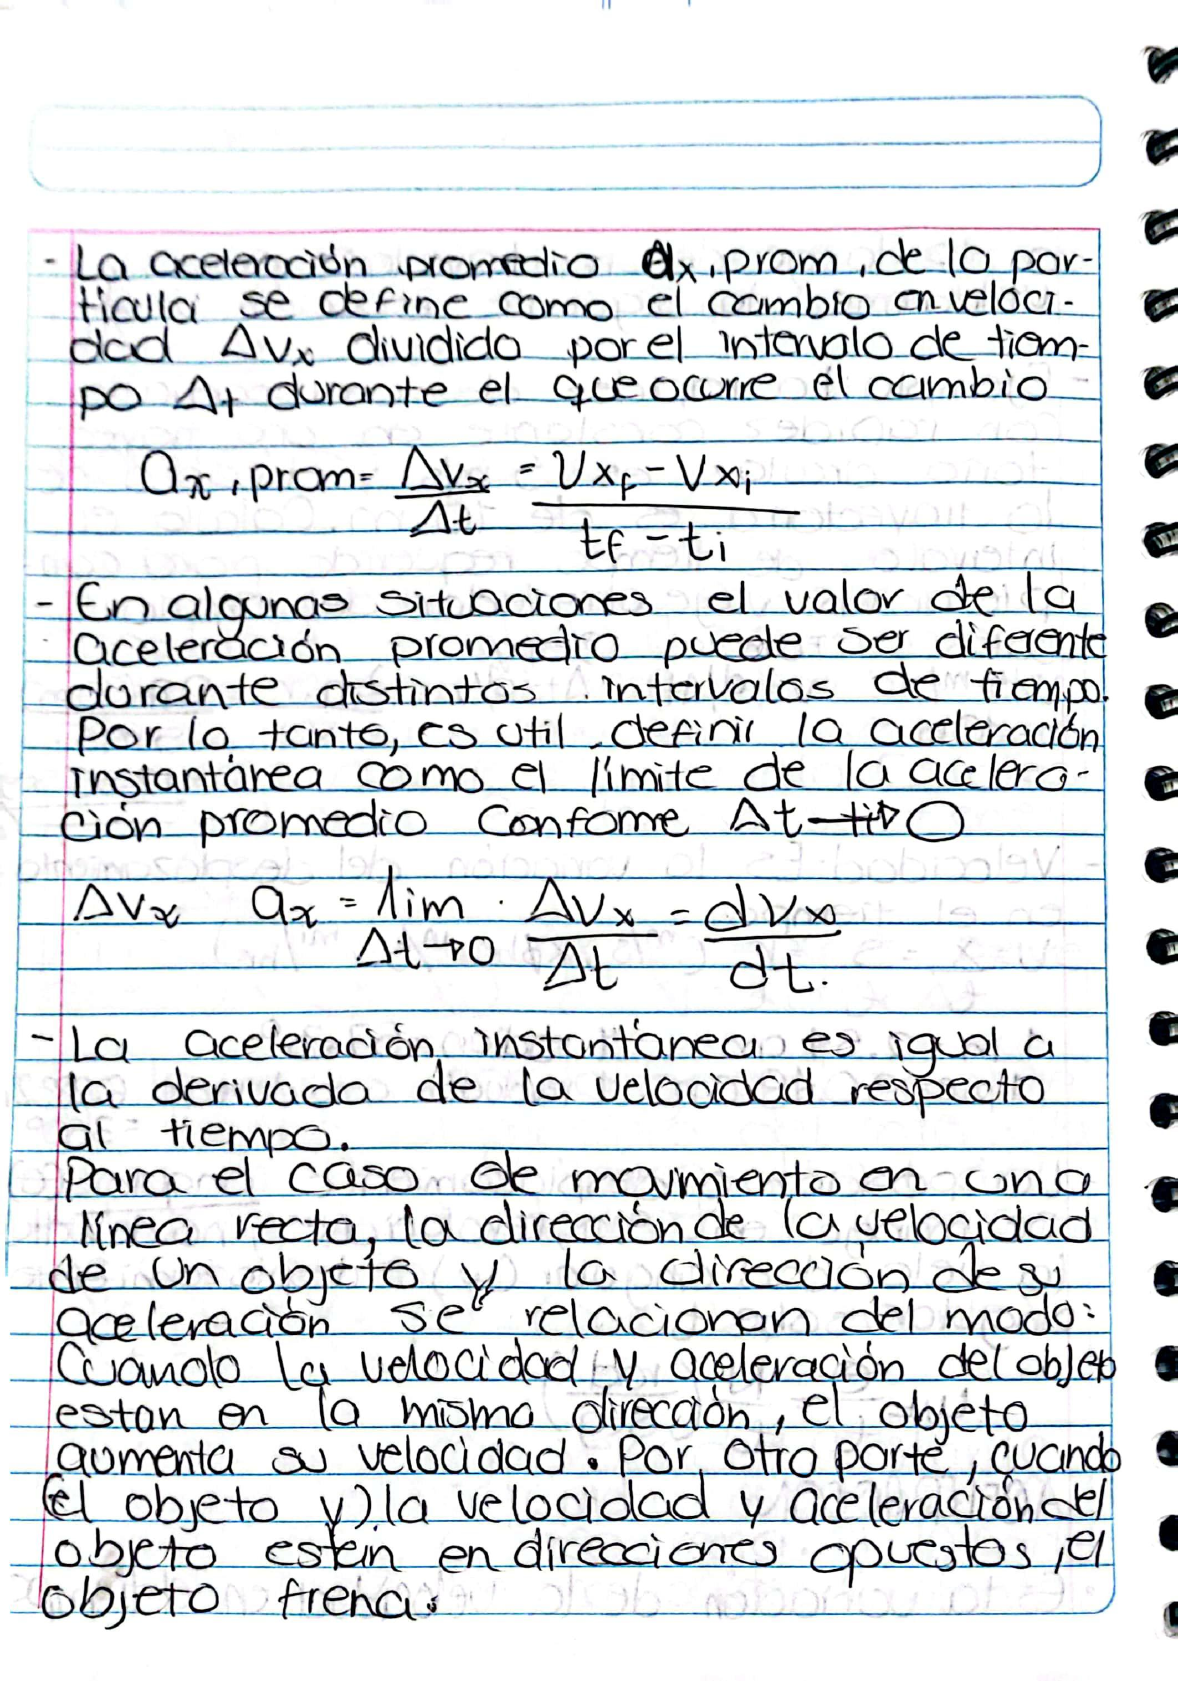 - La aceleración promedio ax, prom, de la par-
tícula se define como el cambio en veloci-
dad Δvx dividido por el intervalo de tiem-
po Δt durante el que ocurre el cambio
ax, prom = Δvx/Δt = Vxf - Vxi / tf - ti
- En algunas situaciones el valor de la
aceleración promedio puede ser diferente
durante distintos intervalos de tiempo.
Por lo tanto, es util definir la aceleración
instantánea como el límite de la acelera-
ción promedio Conforme Δt → 0
Δvx ax = lim Δt→0 Δvx/Δt = dvx/dt.
- La aceleración instantánea es igual a
la derivada de la velocidad respecto
al tiempo.
Para el caso de movimiento en una
línea recta, la dirección de la velocidad
de un objeto y la dirección de su
aceleración se relacionan del modo:
Cuando la velocidad y aceleración del objeto
estan en la misma dirección, el objeto
aumenta su velocidad. Por otro parte, cuando
(el objeto y) la velocidad y aceleración del
objeto estén en direcciones opuestos, el
objeto frena.